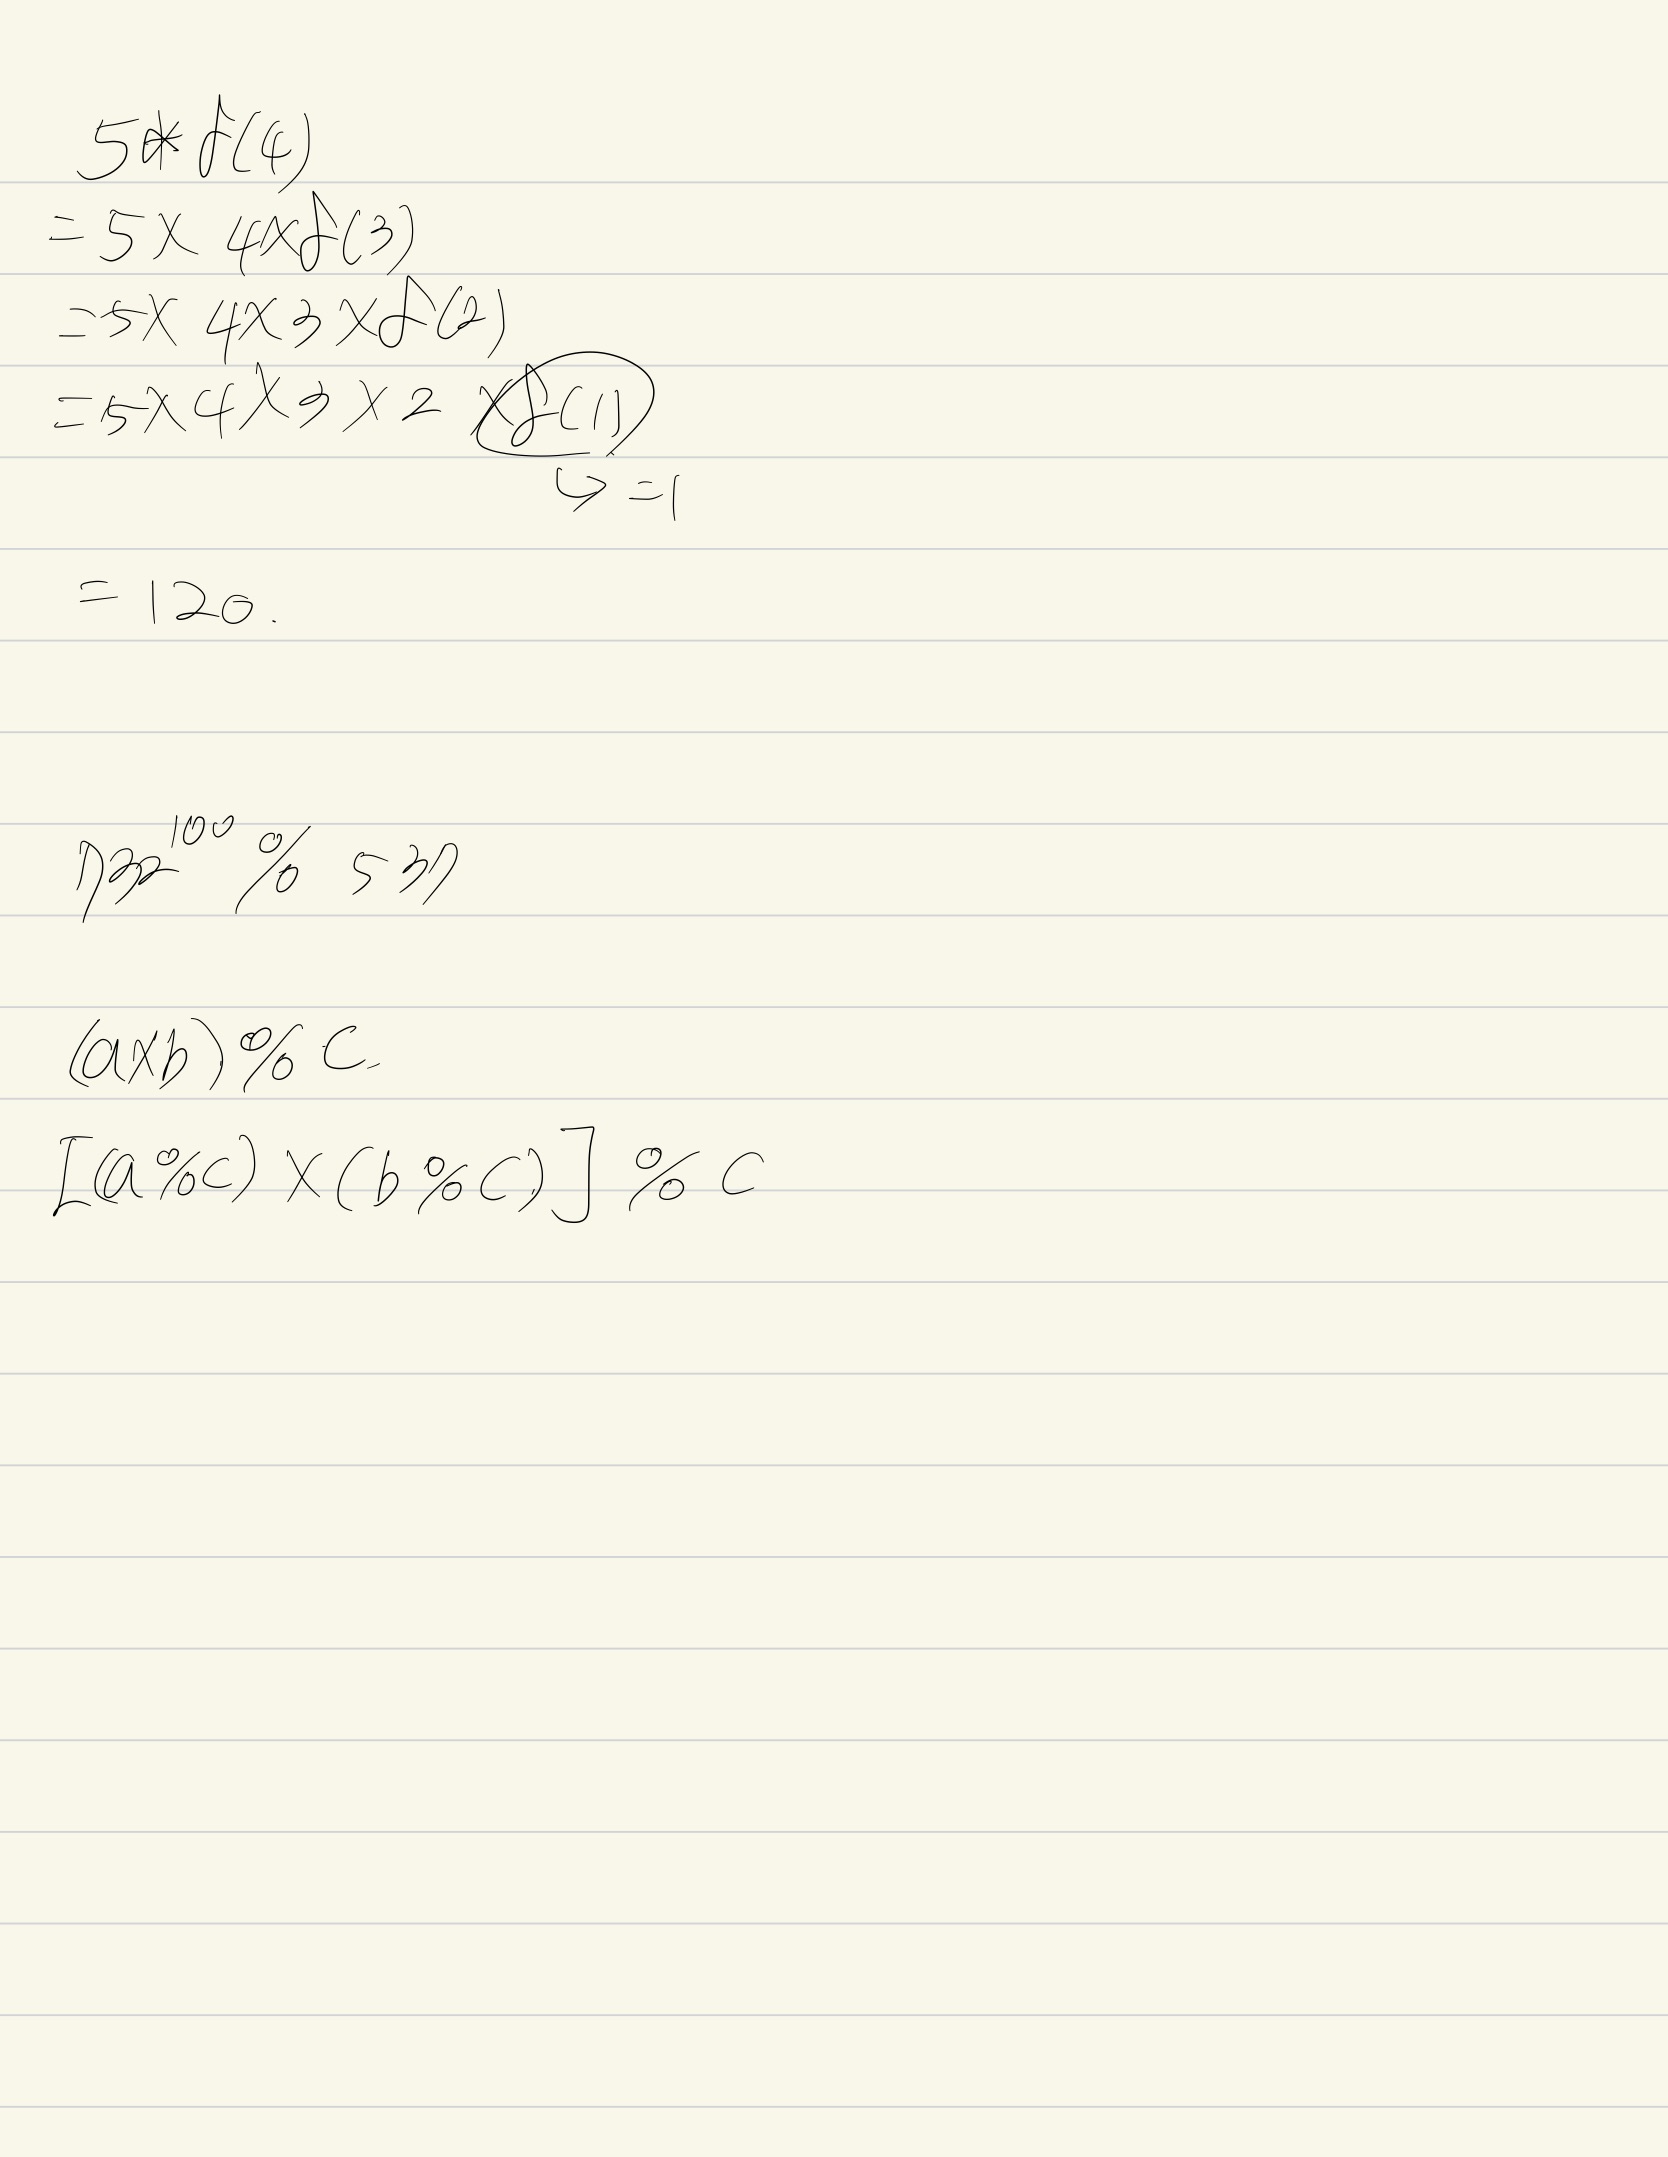 5* f(4)
= 5 × 4×f(3)
= 5× 4×3 ×f(2)
= 5×4×3×2 ×f(1)
↳ =1
= 120.
732¹⁰⁰ % 537
(a×b) % C.
[(a%c) × (b%c)] % C